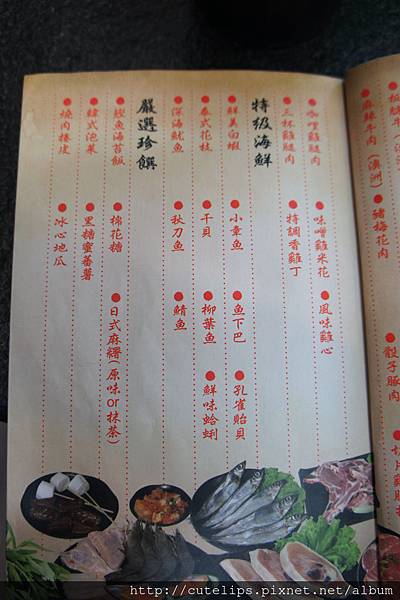 麻辣牛肉(澳洲)
豬梅花肉
骰子豚肉
咖哩雞腿肉
味噌雞米花
風味雞心
三杯雞腿肉
特調香雞丁
特級海鮮
鮮美白蝦
小章魚
魚下巴
孔雀貽貝
泰式花枝
干貝
柳葉魚
鮮味蛤蜊
深海魷魚
秋刀魚
鯖魚
嚴選珍饌
鰹魚海苔飯
棉花糖
日式麻糬(原味or抹茶)
韓式泡菜
黑糖蜜蕃薯
燒肉捲皮
冰心地瓜
http://cutelips.pixnet.net/album